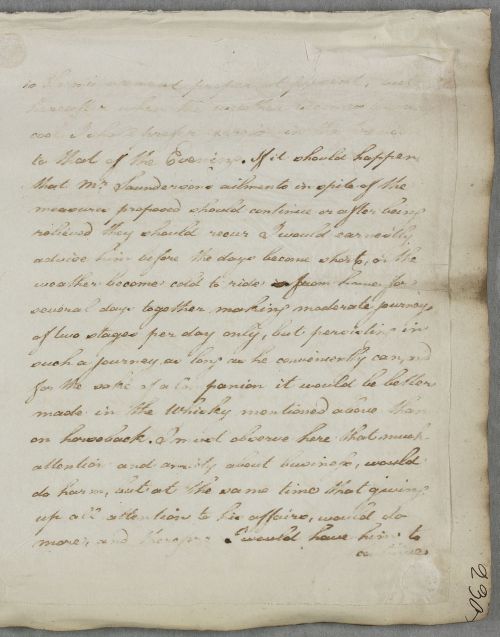 hereafter when the weather becomes
cool I should prefer exercise in the
to that of the Evening. If it should happen
that Mr. Saunderson's ailments in spite of the
measures proposed should continue or after being
relieved they should recur I would earnestly
advise him before the days become short, or the
weather become cold to ride from home for
several days together, making moderate journeys
of two stages per day only, but persisting in
such a journey as long as he conveniently can, and
for the sake of a Companion it would be better
made in the Whisky mentioned above than
on horseback. I must observe here that much
attention and anxiety about business, would
do harm, but at the same time that giving
up all attention to his affairs, would do
more, and therefore I would have him to
continue